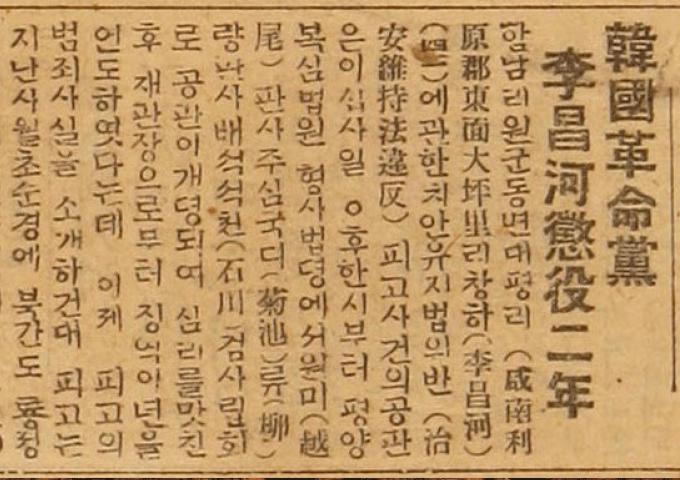 韓國革命黨
李昌河懲役二年
함남리원군동면대평리 (咸南利
原郡東面大坪里리창하(李昌河)
에관한치안유지법의반 (治
安維持法違反) 피고사건의공판
은이십사일 오후한시부터 평양
복심법원 형사법뎡에서원미(越
尾) 판사주심국디(菊池)류(柳)
량판사배석석천(石川)검사립회
로 공판이개뎡되여 심리를맛친
후 재판장으로부터 징역이년을
언도하엿다는데 이제 피고의
범죄사실을 소개하건대 피고는
지난사월초순경에 북간도 룡정